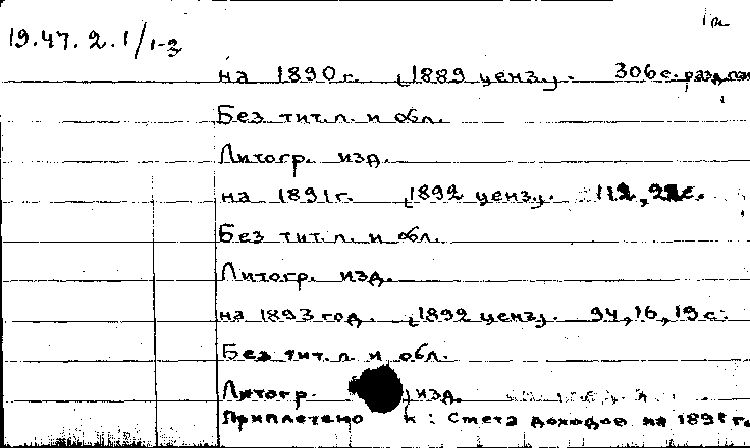 1а
19.47.2.1/1-3
на 1890 г. (1889 ценз.). 306 с. разд. паг
Без тит. л. и обл.
Литогр. изд.
на 1891 г. (1892 ценз.). 112, с.
Без тит. л. и обл.
Литогр. изд.
на 1893 год. (1892 ценз). 94, 16, 19 с.
Без тит. л. и обл.
Литогр. изд.
Приплетено к: Смета доходов на г.